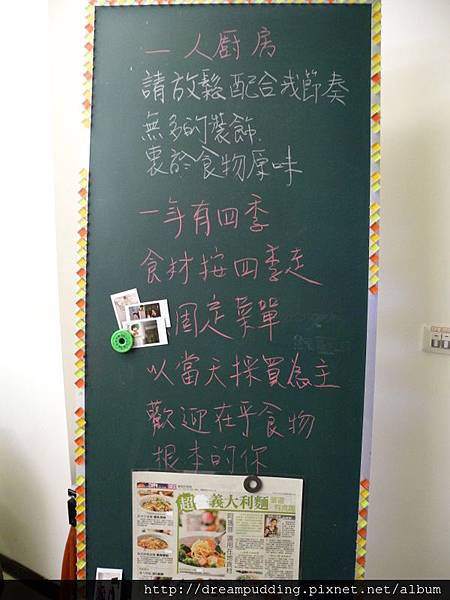 一人廚房
請放鬆配合我節奏
無多的裝飾
衷於食物原味
一年有四季
食材按四季走
固定菜單
以當天採買為主
歡迎在乎食物
根本的你
義大利麵
http://dreampudding.pixnet.net/album